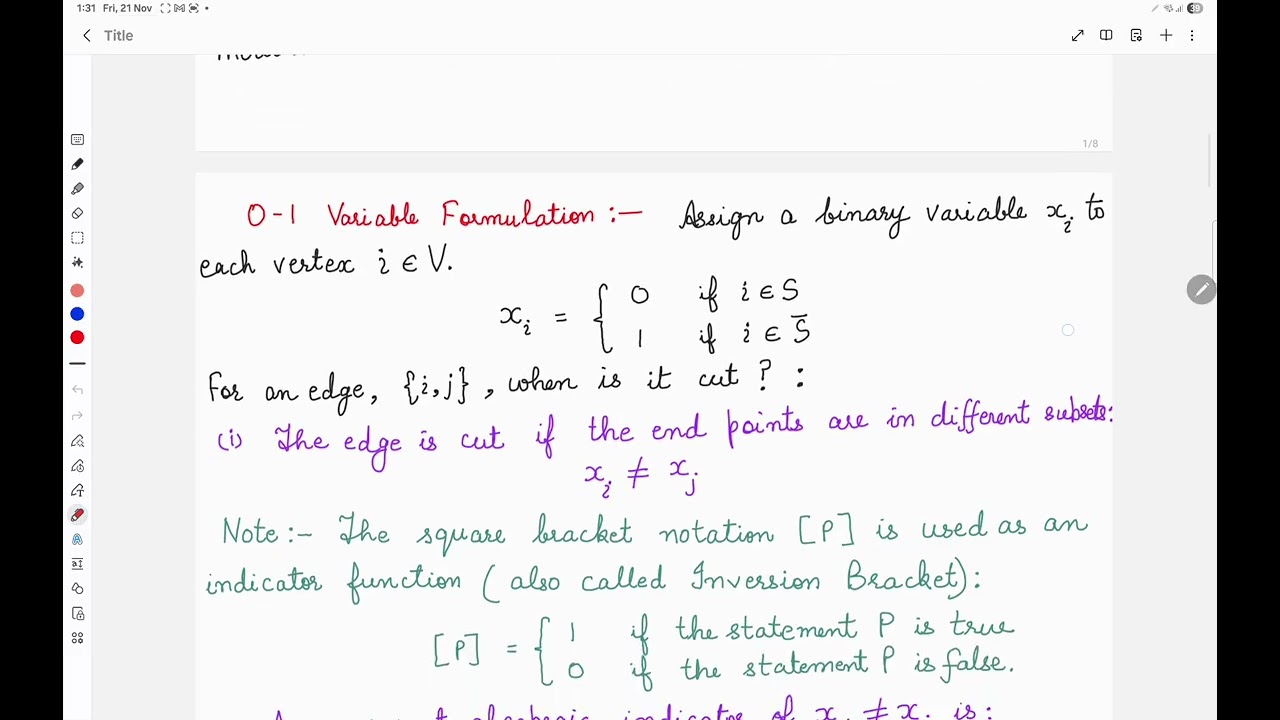 1:31 Fri, 21 Nov
39
Title
1/8
0-1 Variable Formulation :- Assign a binary variable xᵢ to
each vertex i ∈ V.
xᵢ = { 0 if i ∈ S
1 if i ∈ S̄
For an edge, {i,j}, when is it cut ? :
(i) The edge is cut if the end points are in different subsets:
xᵢ ≠ xⱼ
Note :- The square bracket notation [P] is used as an
indicator function (also called Inversion Bracket):
[P] = { 1 if the statement P is true
0 if the statement P is false.
indicator of xᵢ ≠ xⱼ is: